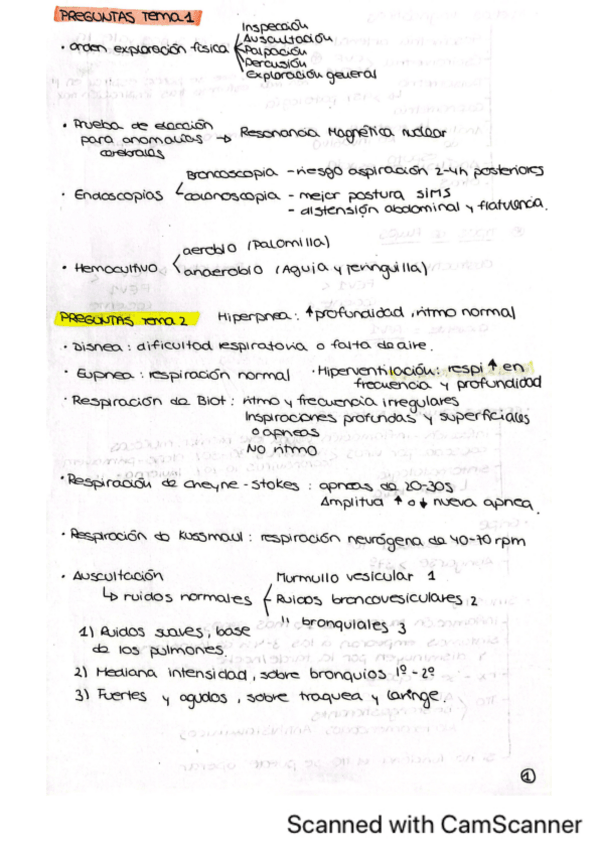 PREGUNTAS Tema 1
Inspección
Auscultación
· orden exploración física Palpación
Percusión
Exploración general
· Prueba de elección
para anomalías → Resonancia Magnética nuclear
cerebrales
Broncoscopia - riesgo aspiración 2-4h posteriores
· Endoscopias colonoscopia - mejor postura SIMS
- distensión abdominal y flatulencia.
aerobio (Palomilla)
· Hemocultivo
anaerobio (Aguja y jeringuilla)
PREGUNTAS Tema 2 Hiperpnea: ↑profundidad, ritmo normal
· Disnea: dificultad respiratoria o falta de aire.
· Eupnea: respiración normal · Hiperventilación: respi ↑ en
frecuencia y profundidad
· Respiración de Biot: ritmo y frecuencia irregulares
Inspiraciones profundas y superficiales
o apneas
No ritmo
· Respiración de cheyne-stokes: apneas de 20-30s
Amplitud ↑ o ↓ nueva apnea.
· Respiración de Kussmaul: respiración neurógena de 40-70 rpm
· Auscultación Murmullo vesicular 1
↳ ruidos normales Ruidos broncovesiculares 2
" bronquiales 3
1) Ruidos suaves, base
de los pulmones.
2) Mediana intensidad, sobre bronquios 1º-2º
3) Fuertes y agudos, sobre traquea y laringe.
1
Scanned with CamScanner